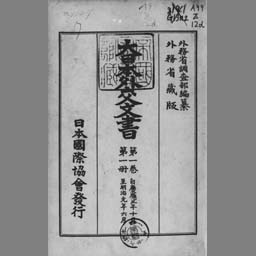 外務省調査部編纂
外務省蔵版
大日本外交文書
第一巻 自慶應三年十月
第一冊 至明治元年六月
日本國際協會發行